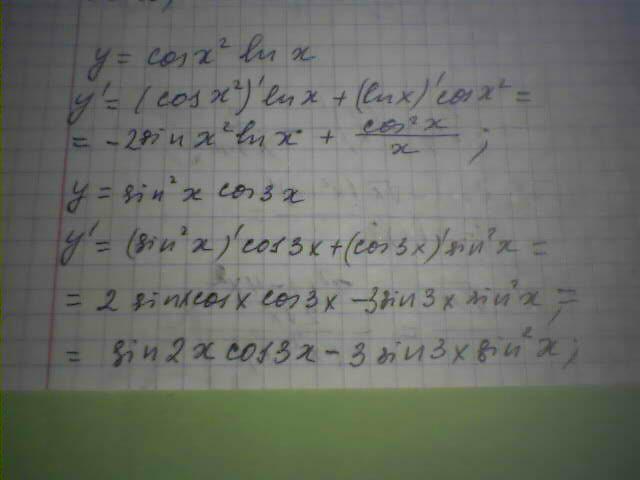 y = cos x² ln x
y' = (cos x²)' ln x + (ln x)' cos x² =
= -2 sin x² ln x + cos² x / x ;
y = sin² x cos 3x
y' = (sin² x)' cos 3x + (cos 3x)' sin² x =
= 2 sin x cos x cos 3x - 3 sin 3x sin² x ; =
= sin 2x cos 3x - 3 sin 3x sin² x ;